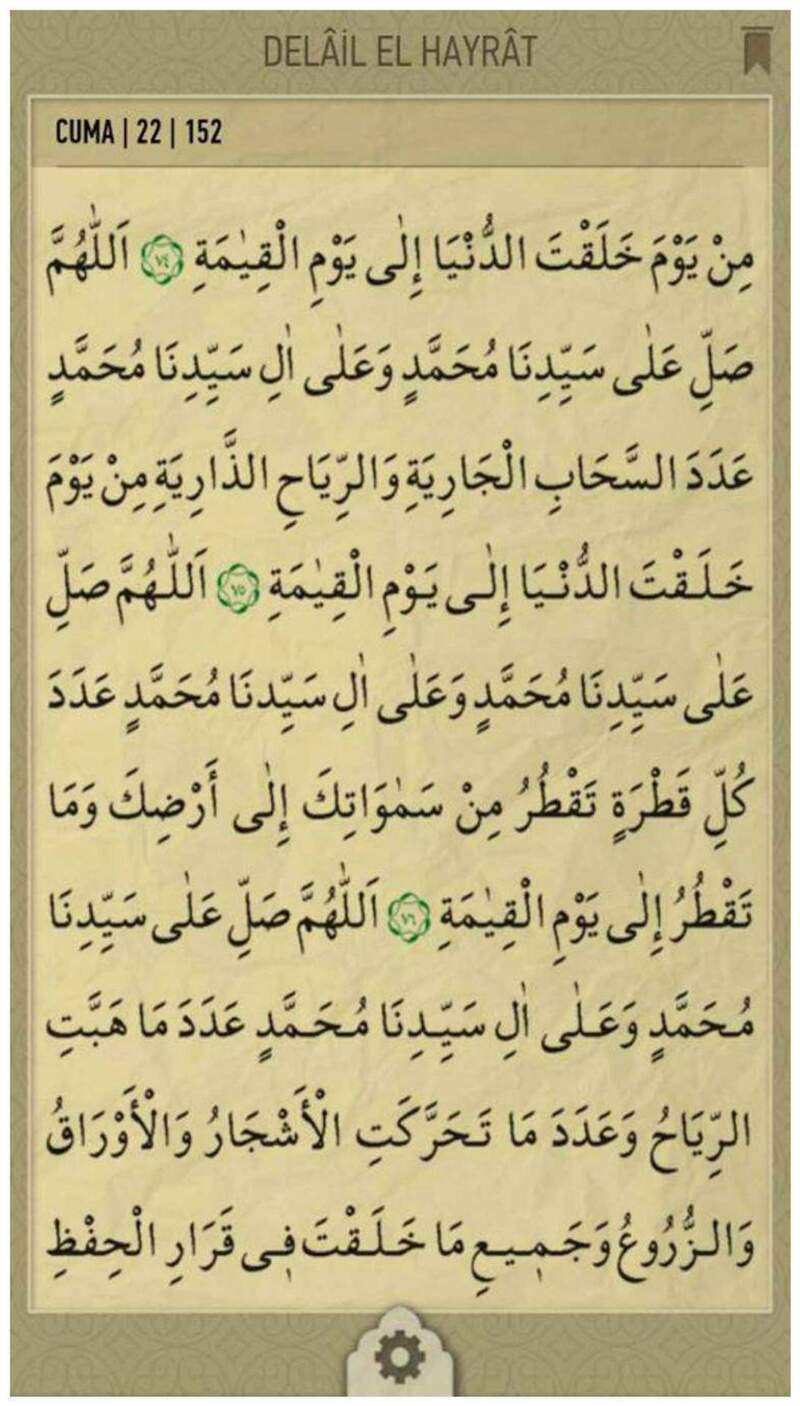 DELÂİL EL HAYRÂT
CUMA | 22 | 152
مِنْ يَوْمَ خَلَقْتَ الدُّنْيَا إِلٰى يَوْمِ الْقِيٰمَةِ ٧٤ اَللّٰهُمَّ
صَلِّ عَلٰى سَيِّدِنَا مُحَمَّدٍ وَعَلٰى اٰلِ سَيِّدِنَا مُحَمَّدٍ
عَدَدَ السَّحَابِ الْجَارِيَةِ وَالرِّيَاحِ الذَّارِيَةِ مِنْ يَوْمَ
خَلَقْتَ الدُّنْيَا إِلٰى يَوْمِ الْقِيٰمَةِ ٧٥ اَللّٰهُمَّ صَلِّ
عَلٰى سَيِّدِنَا مُحَمَّدٍ وَعَلٰى اٰلِ سَيِّدِنَا مُحَمَّدٍ عَدَدَ
كُلِّ قَطْرَةٍ تَقْطُرُ مِنْ سَمٰوَاتِكَ إِلٰى أَرْضِكَ وَمَا
تَقْطُرُ إِلٰى يَوْمِ الْقِيٰمَةِ ٧٦ اَللّٰهُمَّ صَلِّ عَلٰى سَيِّدِنَا
مُحَمَّدٍ وَعَلٰى اٰلِ سَيِّدِنَا مُحَمَّدٍ عَدَدَ مَا هَبَّتِ
الرِّيَاحُ وَعَدَدَ مَا تَحَرَّكَتِ الْأَشْجَارُ وَالْأَوْرَاقُ
وَالزُّرُوعُ وَجَمِيعِ مَا خَلَقْتَ فِى قَرَارِ الْحِفْظِ